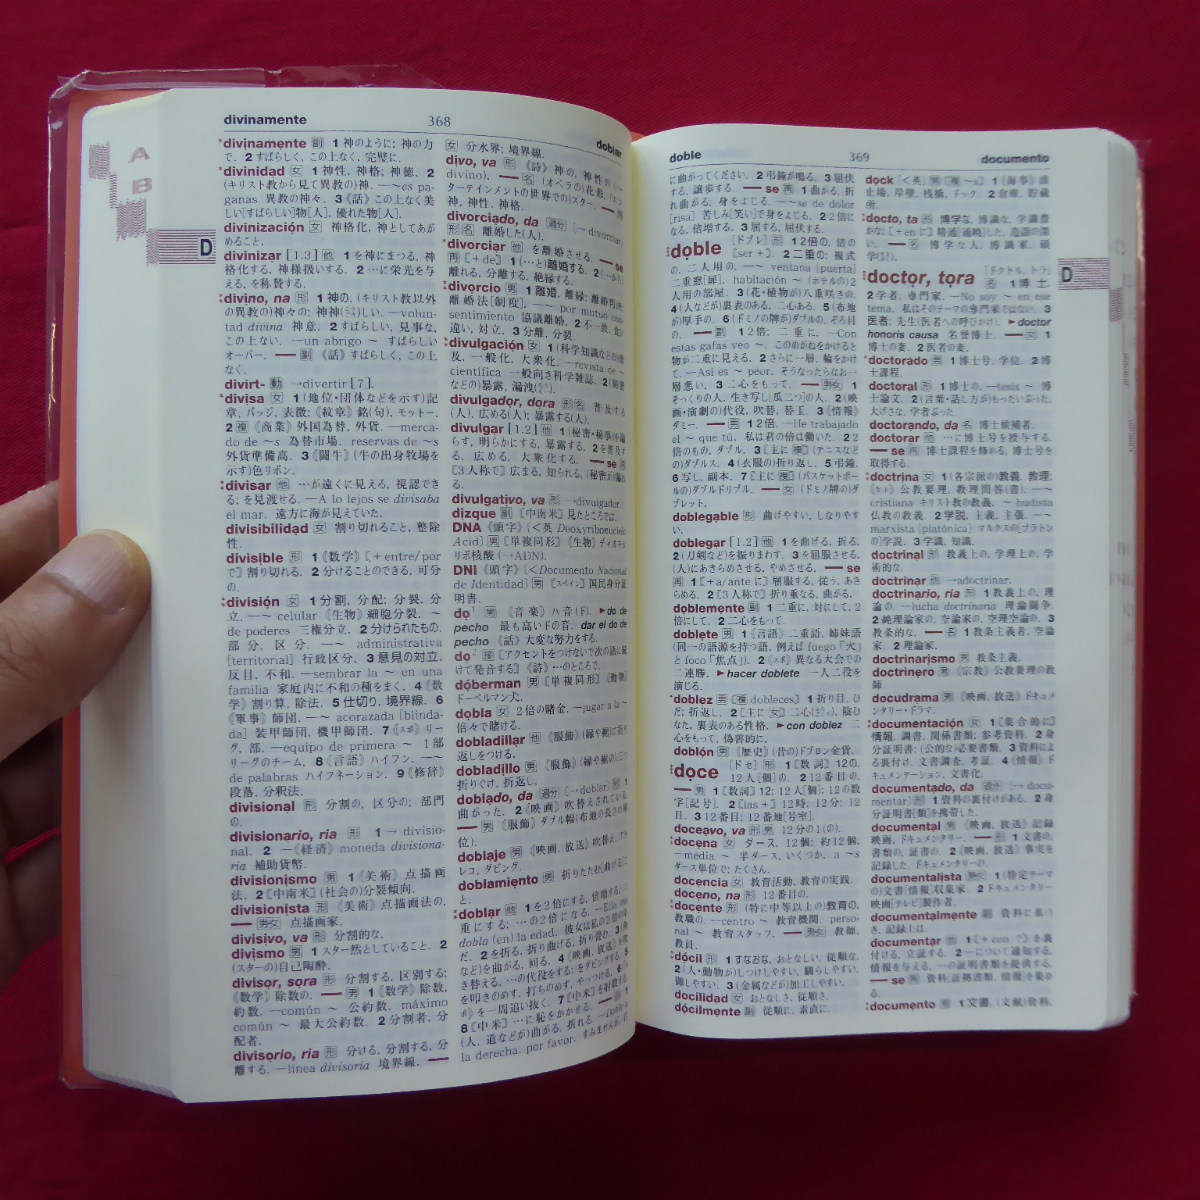 divinamente 368 doblar
A
B
D
*divinamente 副 1 神のように; 神の力
で. 2 すばらしく, この上なく, 完璧に.
*divinidad 女 1 神性, 神格; 神徳. 2
(キリスト教から見て異教の)神. —~es pa-
ganas 異教の神々. 3《話》この上なく美
しい[すばらしい]物[人], 優れた物[人].
divinización 女 神格化, 神としてあが
めること.
divinizar [1.3] 他 1 を神にまつる, 神
格化する, 神様扱いする. 2 …に栄光を与
える, を称賛する.
:divino, na 形 1 神の, (キリスト教以外
の)異教の)神々の; 神神しい. —volun-
tad divina 神意. 2 すばらしい, 見事な,
この上ない. —un abrigo ~ すばらしい
オーバー. — 副《話》すばらしく, この上
なく.
divirt- 動 →divertir [7].
*divisa 女 1 (地位・団体などを示す)記
章, バッジ, 表徴;《紋章》銘(句), モットー.
2 複《商業》外国為替, 外貨. —merca-
do de ~s 為替市場. reservas de ~s
外貨準備高. 3《闘牛》(牛の出身牧場を
示す)色リボン.
:divisar 他 …が遠くに見える, 視認でき
る; を見渡せる. —A lo lejos se divisaba
el mar. 遠方に海が見えていた.
divisibilidad 女 割り切れること, 整除
性.
divisible 形 1《数学》[+entre/por
で] 割り切れる. 2 分けることのできる, 可分
の.
:división 女 1 分割, 分配; 分裂, 分
立. —~ celular《生物》細胞分裂. ~
de poderes 三権分立. 2 分けられたもの,
部分, 区分. —~ administrativa
[territorial] 行政区分. 3 意見の対立,
反目, 不和. —sembrar la ~ en una
familia 家庭内に不和の種をまく. 4《数
学》割り算, 除法. 5 仕切り, 境界線. 6
《軍事》師団. —~ acorazada [blinda-
da] 装甲師団, 機甲師団. 7《スポ》リー
グ, 部. —equipo de primera ~ 1部
リーグのチーム. 8《言語》ハイフン. —~
de palabras ハイフネーション. 9《修辞》
段落, 分釈法.
divisional 形 分割の, 区分の; 部門
の.
divisionario, ria 形 1→divisio-
nal. 2 —《経済》moneda divisiona-
ria 補助貨幣.
divisionismo 男 1《美術》点描画
法. 2 [中南米] (社会の)分裂傾向.
divisionista 形《美術》点描画法の.
— 男女 点描画家.
divisivo, va 形 分割的な.
divismo 男 1 スター然としていること. 2
(スターの)自己陶酔.
divisor, sora 形 分割する, 区別する;
《数学》除数の. — 男 1《数学》除数,
約数. —común ~ 公約数. máximo
común ~ 最大公約数. 2 分割者, 分
配者.
divisorio, ria 形 分ける, 分割する, 分
離する. —línea divisoria 境界線. —
女 分水界; 境界線.
divo, va 形
divorciado, da 過分 [→divorciar]
形名 離婚した(人).
*divorciar 他 を離婚させる. — se
再[+de] 1(…と)離婚する.
離れる, 分離する, 絶縁する.
:divorcio 男 1 離婚, 離縁;
離婚法[制度]. —~ por mutuo con-
sentimiento 協議離婚. 2 不一致, 食い
違い, 対立. 3 分離, 分裂.
:divulgación 女 1 (科学知識などの)普
及, 一般化, 大衆化. —revista de ~
científica 一般向き科学雑誌. 2 (秘密
などの)暴露, 漏洩.
divulgador, dora 形名 普及する
(人), 広める(人); 暴露する(人).
divulgar [1.2] 他 1 (秘密・秘事)を漏
らす, 明らかにする, 暴露する. 2 を普及す
る, 広める, 大衆化する. — se 再
[3人称で] 広まる, 知られる,
divulgativo, va 形 →divulgador.
dizque 副 [中南米] 見たところでは.
DNA《頭字》[<英 Deoxyribonucleic
Acid] 男[単複同形]《生物》デオキシ
リボ核酸 (→ADN).
DNI《頭字》[<Documento Nacional
de Identidad] 男 [スペイン] 国民身分証
明書.
do¹ 男《音楽》ハ音(ド). ▶do de
pecho 最も高いドの音. dar el do de
pecho《話》大変な努力をする.
do² 接 [アクセントをつけないで次の語に続
けて発音する]《詩》…のところで.
dóberman 男[単複同形]《動物》
ドーベルマン犬.
dobla 女 2倍の賭金. —jugar a la ~
倍々で賭ける.
dobladillar 他《服飾》(縁や裾に)折
り返しをつける.
dobladillo 男《服飾》
折りぐけ, 折返し.
doblado, da 過分 [→doblar] 形 1
曲がった. 2《映画》吹替えされている.
— 男《服飾》ダブル幅(布地の長さの単
位).
doblaje 男《映画, 放送》吹替え, アフ
レコ, ダビング.
doblamiento 男 折りたたむ[曲げる]こ
と.
:doblar 他 1 を2倍にする, 倍増する, 二
重にする; …の2倍になる. —Ella me
dobla (en) la edad. 彼女は私の2倍の年
だ. 2 を折る, 折り曲げる, 折り畳む. 3
などを曲がる, 回る. 4《映画, 放送》を吹
き替える, …の代役をする; をダビングする. 5
を叩きのめす, 打ちのめす, やっつける. 6
を一周追い抜く. 7 [中米]
8 [中米] …に恥をかかせる. —
(人, 道などが)曲がる, 折れる. —Doble a
la derecha, por favor. すみませんが, 右
doble 369 documento
D
に曲がってください. 2 弔鐘が鳴る. 3 屈伏
する, 譲歩する. — se 再 1 曲がる, 折
れ曲がる; 身をよじる. —~se de dolor
[risa] 苦しみ[笑い]で身をよじる. 2 2倍に
なる, 倍増する. 3 屈する, 屈伏する.
:doble [ドブレ] 形 1 2倍の, 倍の
[ser+]. 2 二重の; 複式
の, 二人用の. —~ ventana [puerta]
二重窓[扉]. habitación ~ (ホテルの)2
人用の部屋. 3 (花・植物が)八重咲きの.
4 (人などが)裏表のある, 二心ある. 5 (布地
が)厚手の. 6 (ドミノの牌が)ダブルの, ぞろ目
の. — 副 1 2倍; 二重に. —Con
estas gafas veo ~. このめがねをかけると
物が二重に見える. 2 さらに一層, 輪をかけ
て. —Así es ~ peor. そうなったらなお一
層悪い. 3 二心をもって. — 男女 1
そっくりの人, 生き写し[瓜二つ]の人. 2 (映
画・演劇の)代役, 吹替, 替玉. 3《情報》
ダミー. — 男 1 2倍. —He trabajado
el ~ que tú. 私は君の倍は働いた. 2 2
倍のもの, ダブル. 3 [主に複] (テニスなど
の)ダブルス. 4 (衣服の)折り返し. 5 弔鐘.
6 写し, 副本. 7 [主に複] (バスケットボー
ルの)ダブルドリブル. — 女 (ドミノ牌の)ダ
ブレット.
doblegable 形 曲げやすい, しなりやす
い.
doblegar [1.2] 他 1 を曲げる, 折る.
2 (刀剣など)を振りまわす. 3 を屈服させる,
(人)にあきらめさせる, やめさせる. — se
再 1 [+a/ante に] 屈服する, 従う, あき
らめる. 2 [3人称で] 折り重なる, 曲がる.
doblemente 副 1 二重に, 対にして, 2
倍にして. 2 二心をもって.
doblete 男 1《言語》二重語, 姉妹語
(同一の語源を持つ語, 例えば fuego「火」
と foco「焦点」). 2《スポ》異なる大会での
二連勝. ▶hacer doblete 一人二役を
演じる.
*doblez 男 [複 dobleces] 1 折り目, ひ
だ; 折返し. 2 [主に女] 二心, 陰ひ
なた, 裏表のある性格. ▶con doblez 二
心をもって, 偽善的に.
doblón 男《歴史》(昔の)ドブロン金貨.
:doce [ドセ] 形 1《数詞》12の,
12人[個]の. 2 12番目の.
— 男 1《数詞》12; 12人[個]; 12の数
字[記号]. 2 [las+] 12時; 12分; 12
日. 3 12番目; 12番地[号室].
doceavo, va 形男 12分の1(の).
*docena 女 ダース, 12個; 約12個.
—media ~ 半ダース, いくつか. a ~s
ダース単位で; たくさん.
docencia 女 教育活動, 教育の実践.
doceno, na 形 12番目の.
*docente 形 (特に中等以上の)教育の,
教職の. —centro ~ 教育機関. perso-
nal ~ 教育スタッフ. — 男女 教師,
教員.
:dócil 形 1 すなおな, おとなしい, 従順な.
2 (人・動物が)しつけしやすい, 馴らしやすい,
御しやすい. 3 (金属などが)加工しやすい.
docilidad 女 おとなしさ, 従順さ.
dócilmente 副 従順に, 素直に.
dock [<英] 男[複~s] 1《海事》波
止場, 岸壁, 桟橋, ドック. 2 倉庫, 貯蔵
所.
:docto, ta 形 博学な, 博識な, 学識豊
かな; [+en に] 精通[通暁]した, 造詣の深
い. — 名 博学な人, 博識家, 碩
学.
:doctor, tora [ドクトル, トラ]
名 1 博士.
2 学者, 専門家. —No soy ~ en ese
tema. 私はそのテーマの専門家ではない. 3
医者; 先生(医者への呼びかけ). ▶doctor
honoris causa 名誉博士. — 女 1
博士の妻. 2 医者の妻.
*doctorado 男 1 博士号, 学位. 2 博
士課程.
doctoral 形 1 博士の. —tesis ~ 博
士論文. 2 (言葉・話し方が)もったいぶった,
大げさな, 学者ぶった.
doctorando, da 名 博士候補者.
doctorar 他 …に博士号を授与する.
— se 再 博士課程を修める, 博士号を
取得する.
*doctrina 女 1 (各宗派の)教義, 教理;
《カト》公教要理, 教理問答(書). —~
cristiana キリスト教の教義. ~ budista
仏教の教義. 2 学説, 主義, 主張. —~
marxista [platónica] マルクスの[プラトン
の]学説. 3 学識, 知識.
doctrinal 形 教義上の, 学理上の, 学
術的な.
doctrinar 他 →adoctrinar.
doctrinario, ria 形 1 教義上の, 理
論の. —lucha doctrinaria 理論闘争.
2 純理論家の, 空論家の, 空理空論の. 3
教条的な. — 名 1 教条主義者, 空論
家. 2 理論家.
doctrinarismo 男 教条主義.
doctrinero 男《宗教》公教要理の教
師.
docudrama 男《映画, 放送》ドキュメ
ンタリー・ドラマ.
:documentación 女 1 [集合的に]
情報, 調書, 関係書類; 参考資料. 2 身
分証明書; (公的な)必要書類. 3 資料によ
る裏付け, 文書調査, 考証. 4《情報》ド
キュメンテーション, 文書化.
documentado, da 過分 [→docu-
mentar] 形 1 資料の裏付けがある. 2 身
分証明書[類]を携帯した.
documental 男《映画, 放送》記録
映画, ドキュメンタリー. — 形 1 文書の,
書類の, 証書の. 2《映画, 放送》事実を
記録した, ドキュメンタリーの.
documentalista 男女 1 (特定テーマ
の)文書[情報]収集家. 2 ドキュメンタリー
映画[テレビ]製作者.
documentalmente 副 資料に基づ
き, 記録上は.
documentar 他 1 [+con で] を裏
付ける, 立証する. 2 —について通知する,
情報を与える, —の証明書類を提供する.
— se 再 資料[証拠書類, 情報]を集め
る.
:documento 男 1 文書, (文献)資料,